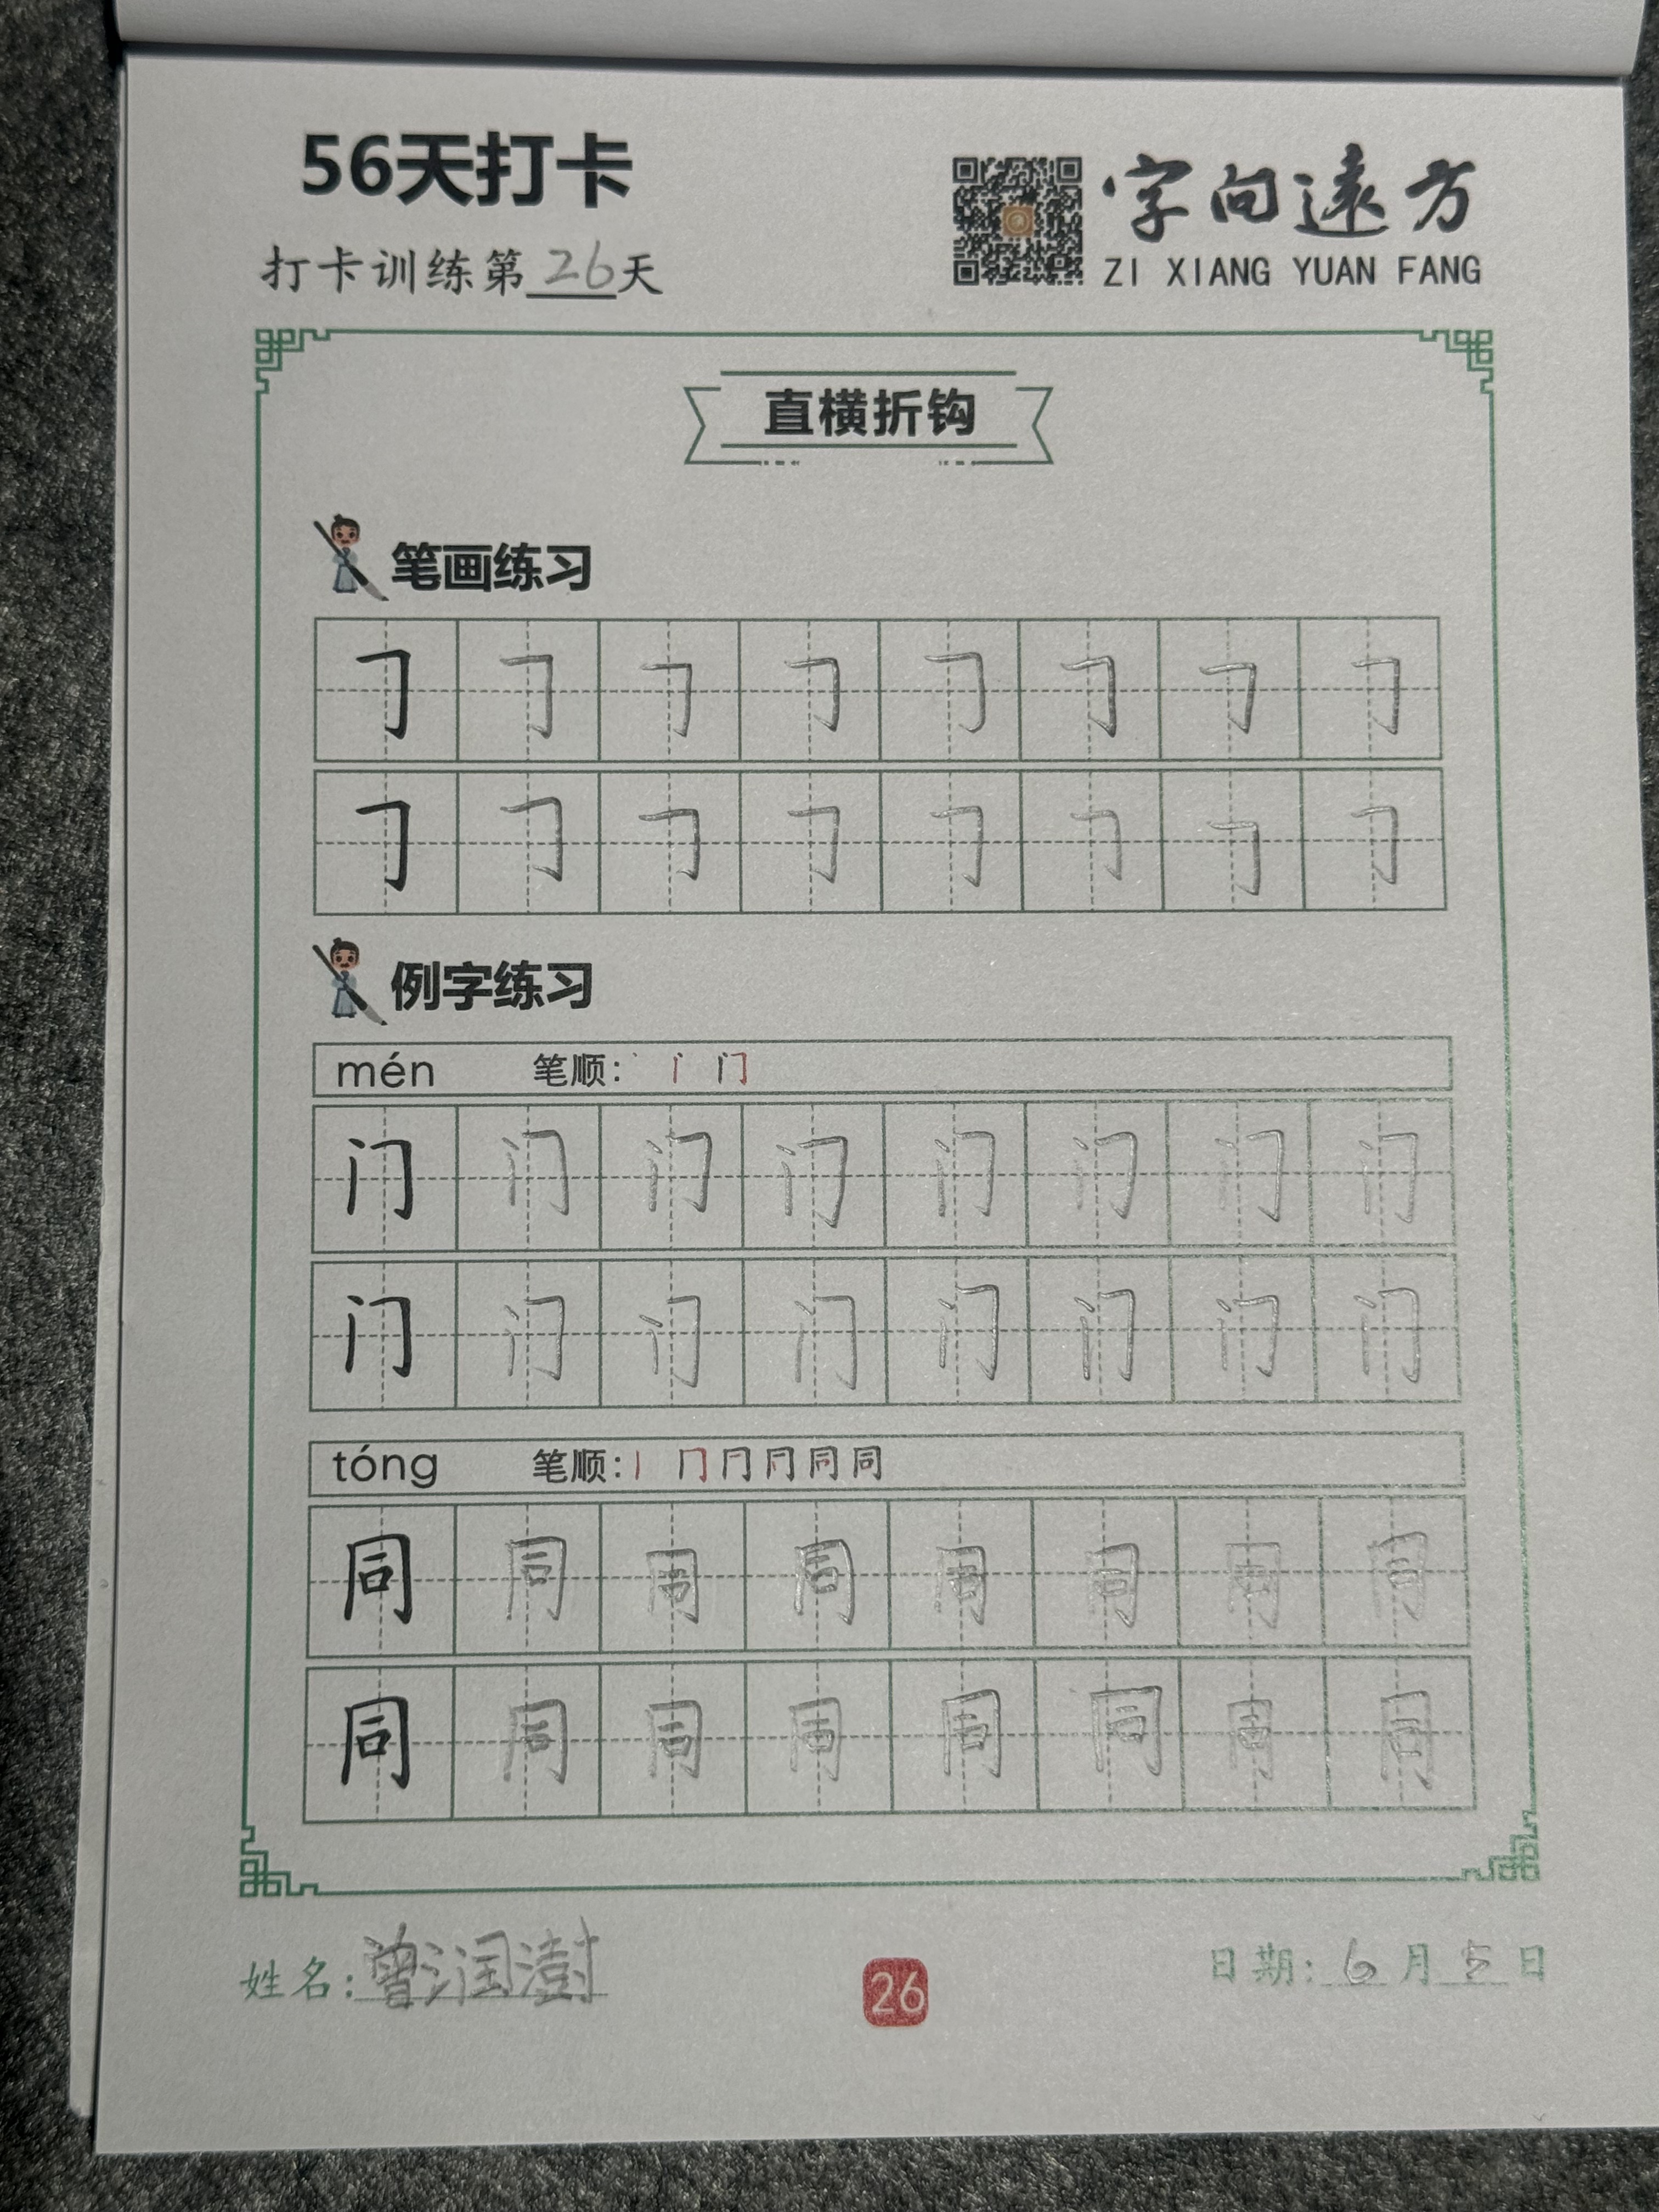 56天打卡
字向远方
ZI XIANG YUAN FANG
打卡训练第26天
直横折钩
笔画练习
𠃌 𠃌 𠃌 𠃌 𠃌 𠃌 𠃌 𠃌
𠃌 𠃌 𠃌 𠃌 𠃌 𠃌 𠃌 𠃌
例字练习
mén 笔顺: 丶 门
门 门 门 门 门 门 门 门
门 门 门 门 门 门 门 门
tóng 笔顺: 丨 冂 同 同
同 同 同 同 同 同 同 同
同 同 同 同 同 同 同 同
姓名: 曾润澍
26
日期: 6月5日